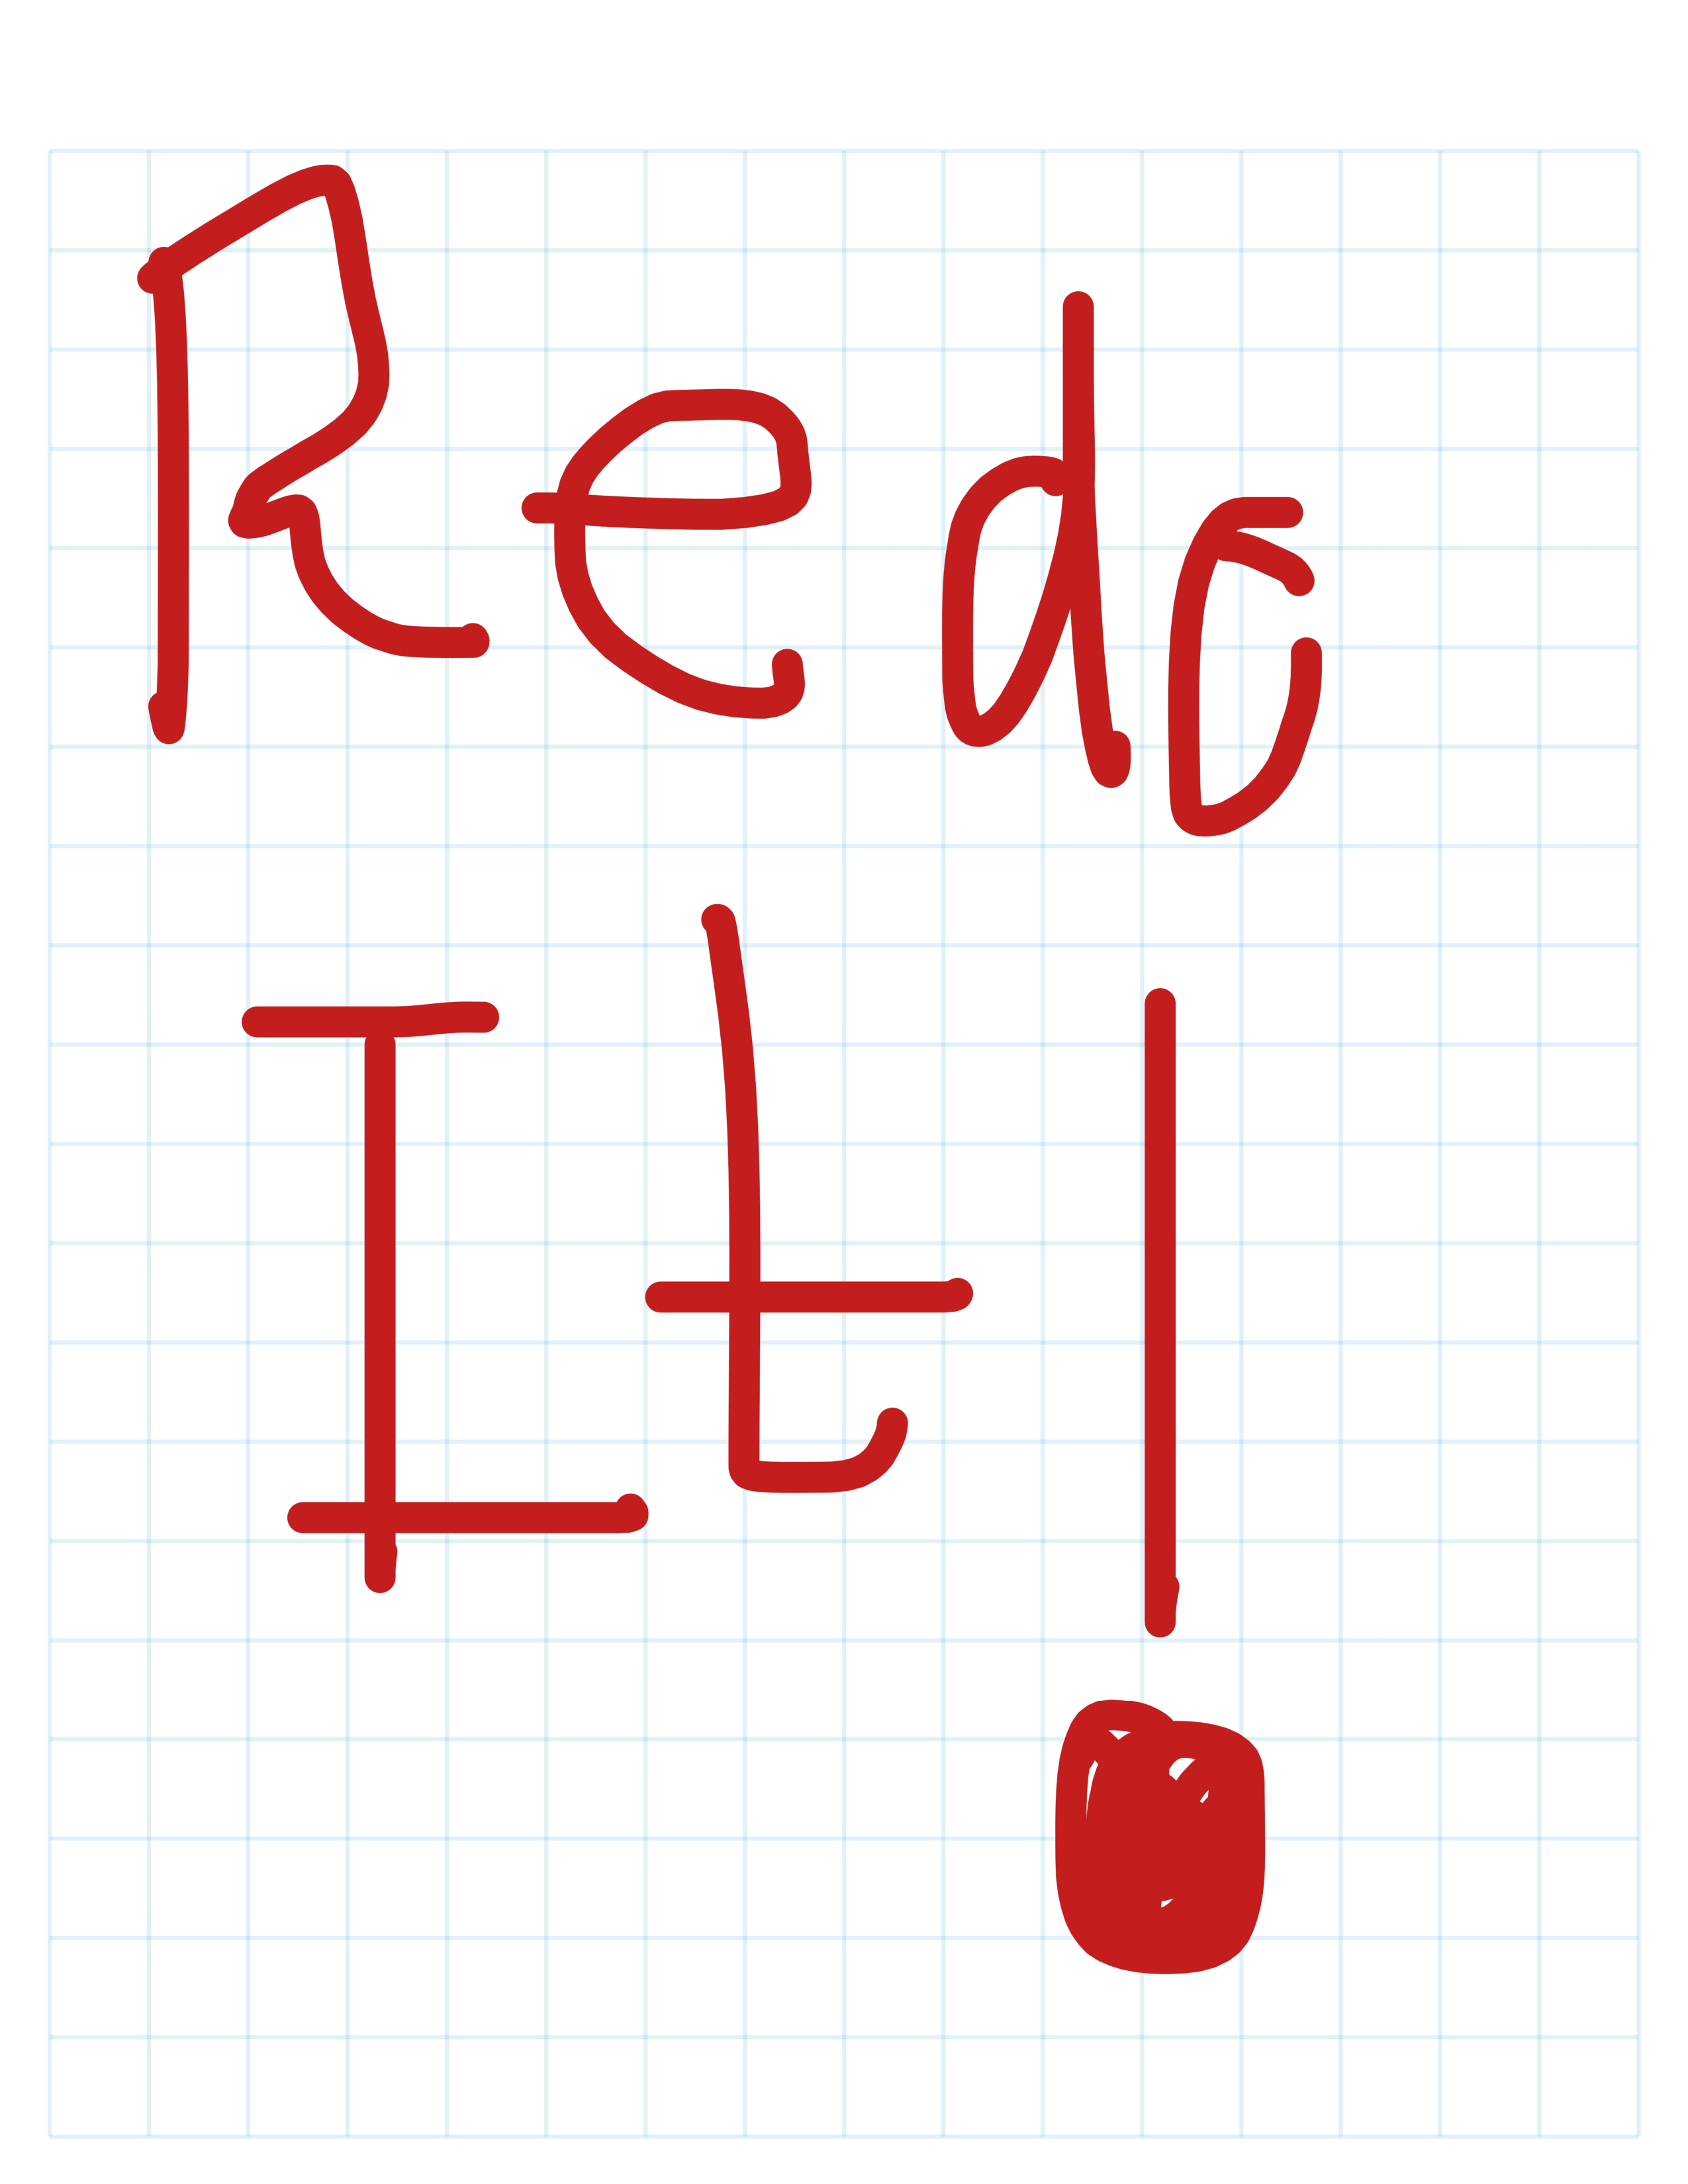 Redo
It!